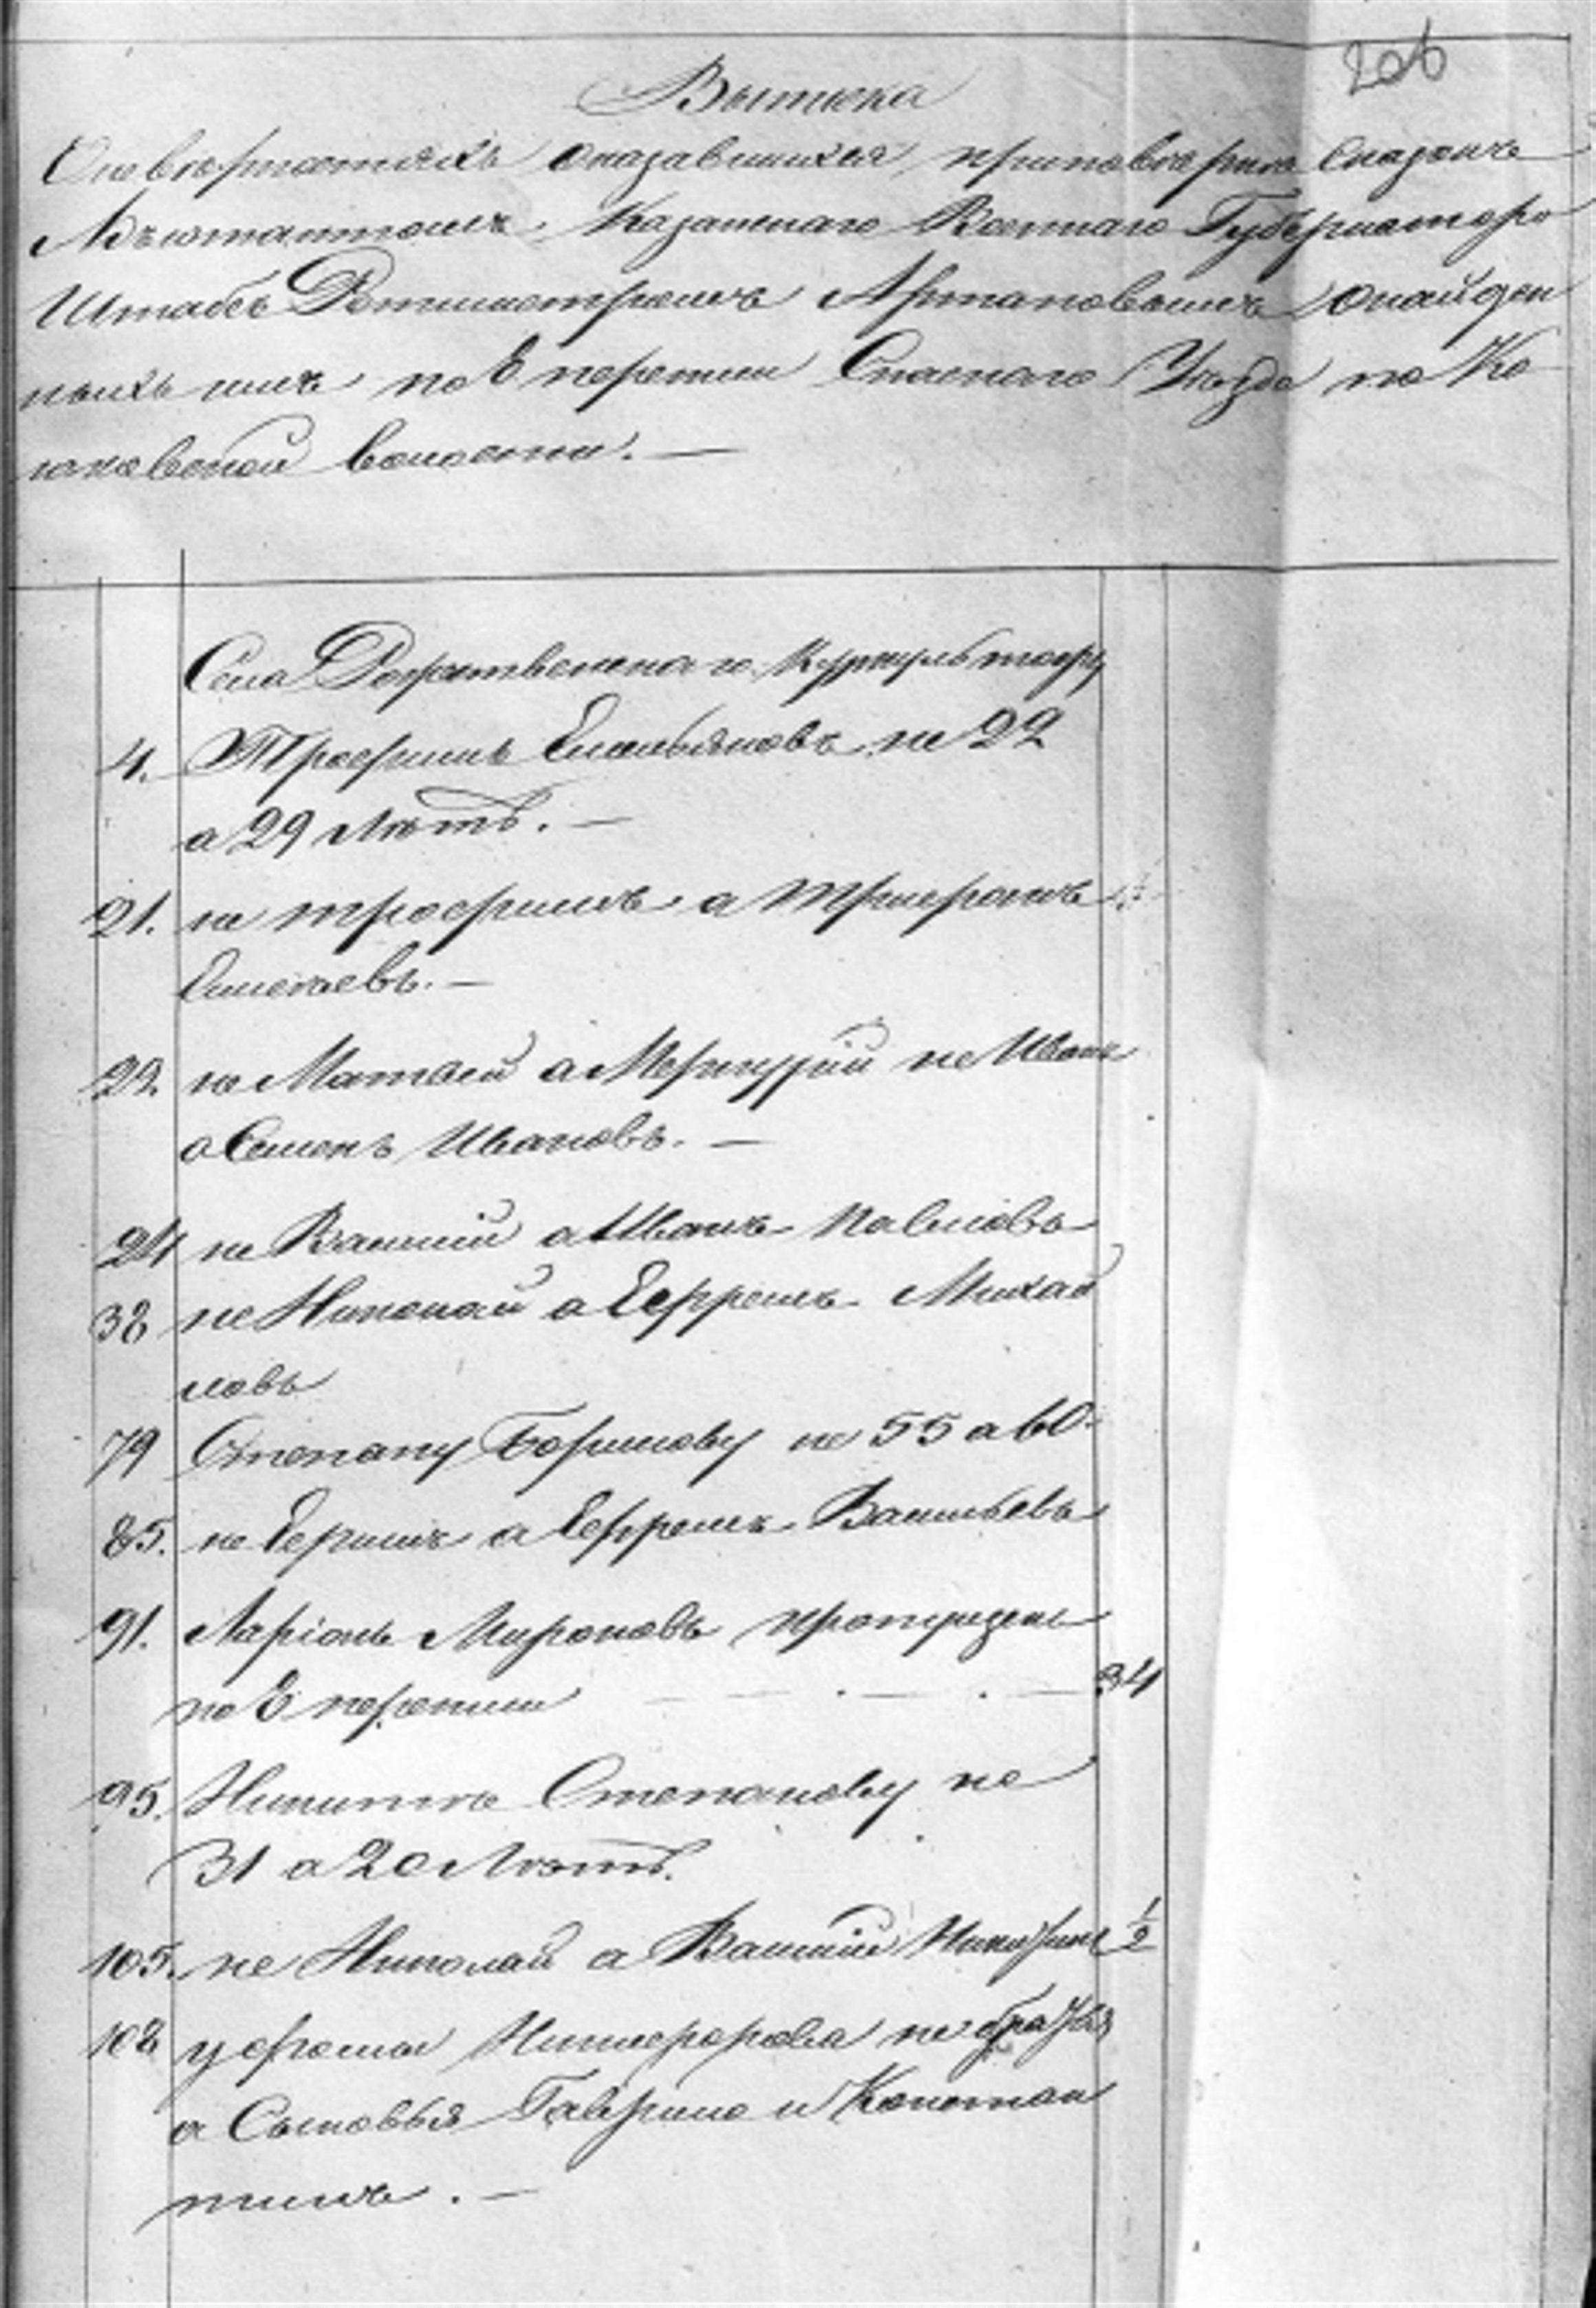 206
Выписка
О невѣрностяхъ оказавшихся при повѣркѣ Сказокъ
Адъютантомъ Казанскаго Военнаго Губернатора
Штабсъ Ротмистромъ Артаповымъ о найден
ныхъ имъ по 8 переписи Спаскаго Уѣзда по Ко
ковской волости. —
Села Рожественскаго
4. Трофимъ Емельяновъ не 22
а 29 лѣтъ. —
21. не трофимъ а Трифонъ
22. не Матвей а Меркурій не Иванъ
а Семенъ Ивановъ. —
24 не Василій а Иванъ Павловъ
38 не Николай а Ефремъ Михай
ловъ
79 Степану не 55 а 60.
85. не Ефимъ а Ефремъ Васильевъ
91. Ларіонъ Мироновъ пропущенъ
по 8 переписи — . — . — 34
95. Никитѣ Степанову не
31 а 20 Лѣтъ.
105. не Николай а Василій 1/2
108 у Фомы Никифорова не братья
а Сыновья Гаврило и Констан
тинъ. —